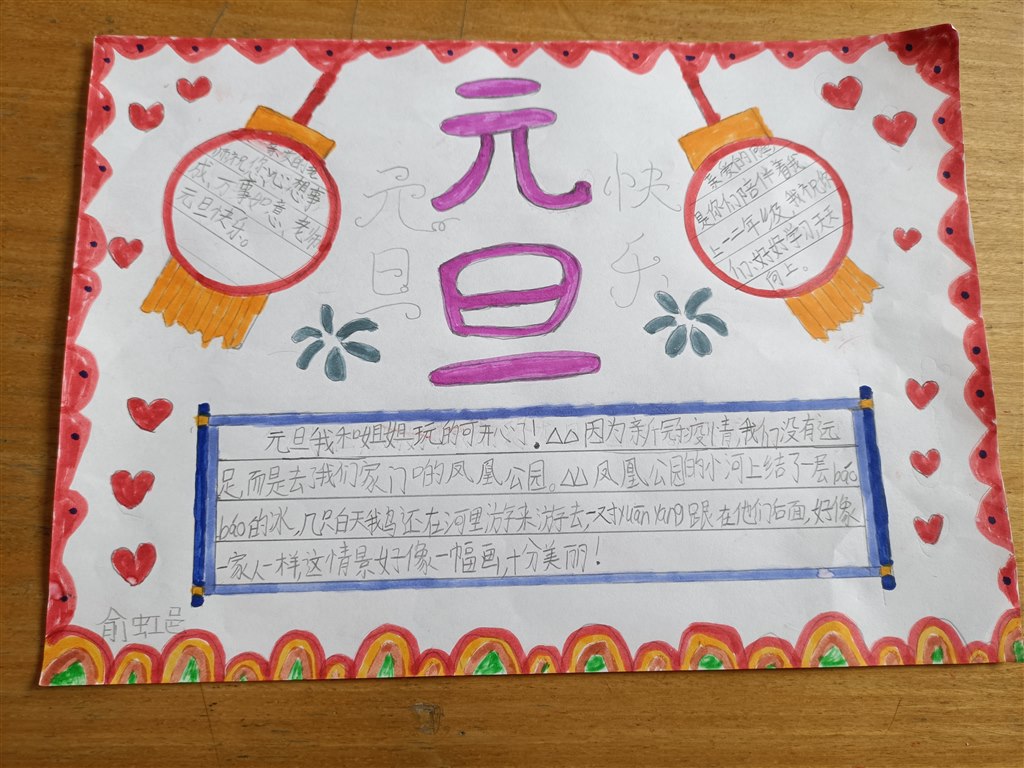 元
旦
元 快
旦 乐
亲爱的老
师祝你心想事
成，万事如意，老师
元旦快乐。
亲爱的同望，
是你们陪伴着我
上一二年级，我祝你
们、好好学习，天天
向上。
元旦我和姐姐玩的可开心了！△△因为新冠疫情，我们没有远
足，而是去了我们家门口的凤凰公园。△△凤凰公园的小河上结了一层báo
báo的冰，几只白天我鸟还在河里游来游去，一对yuān yang跟在他们后面，好像
一家人一样，这情景好像一幅画，十分美丽！
俞虹邑